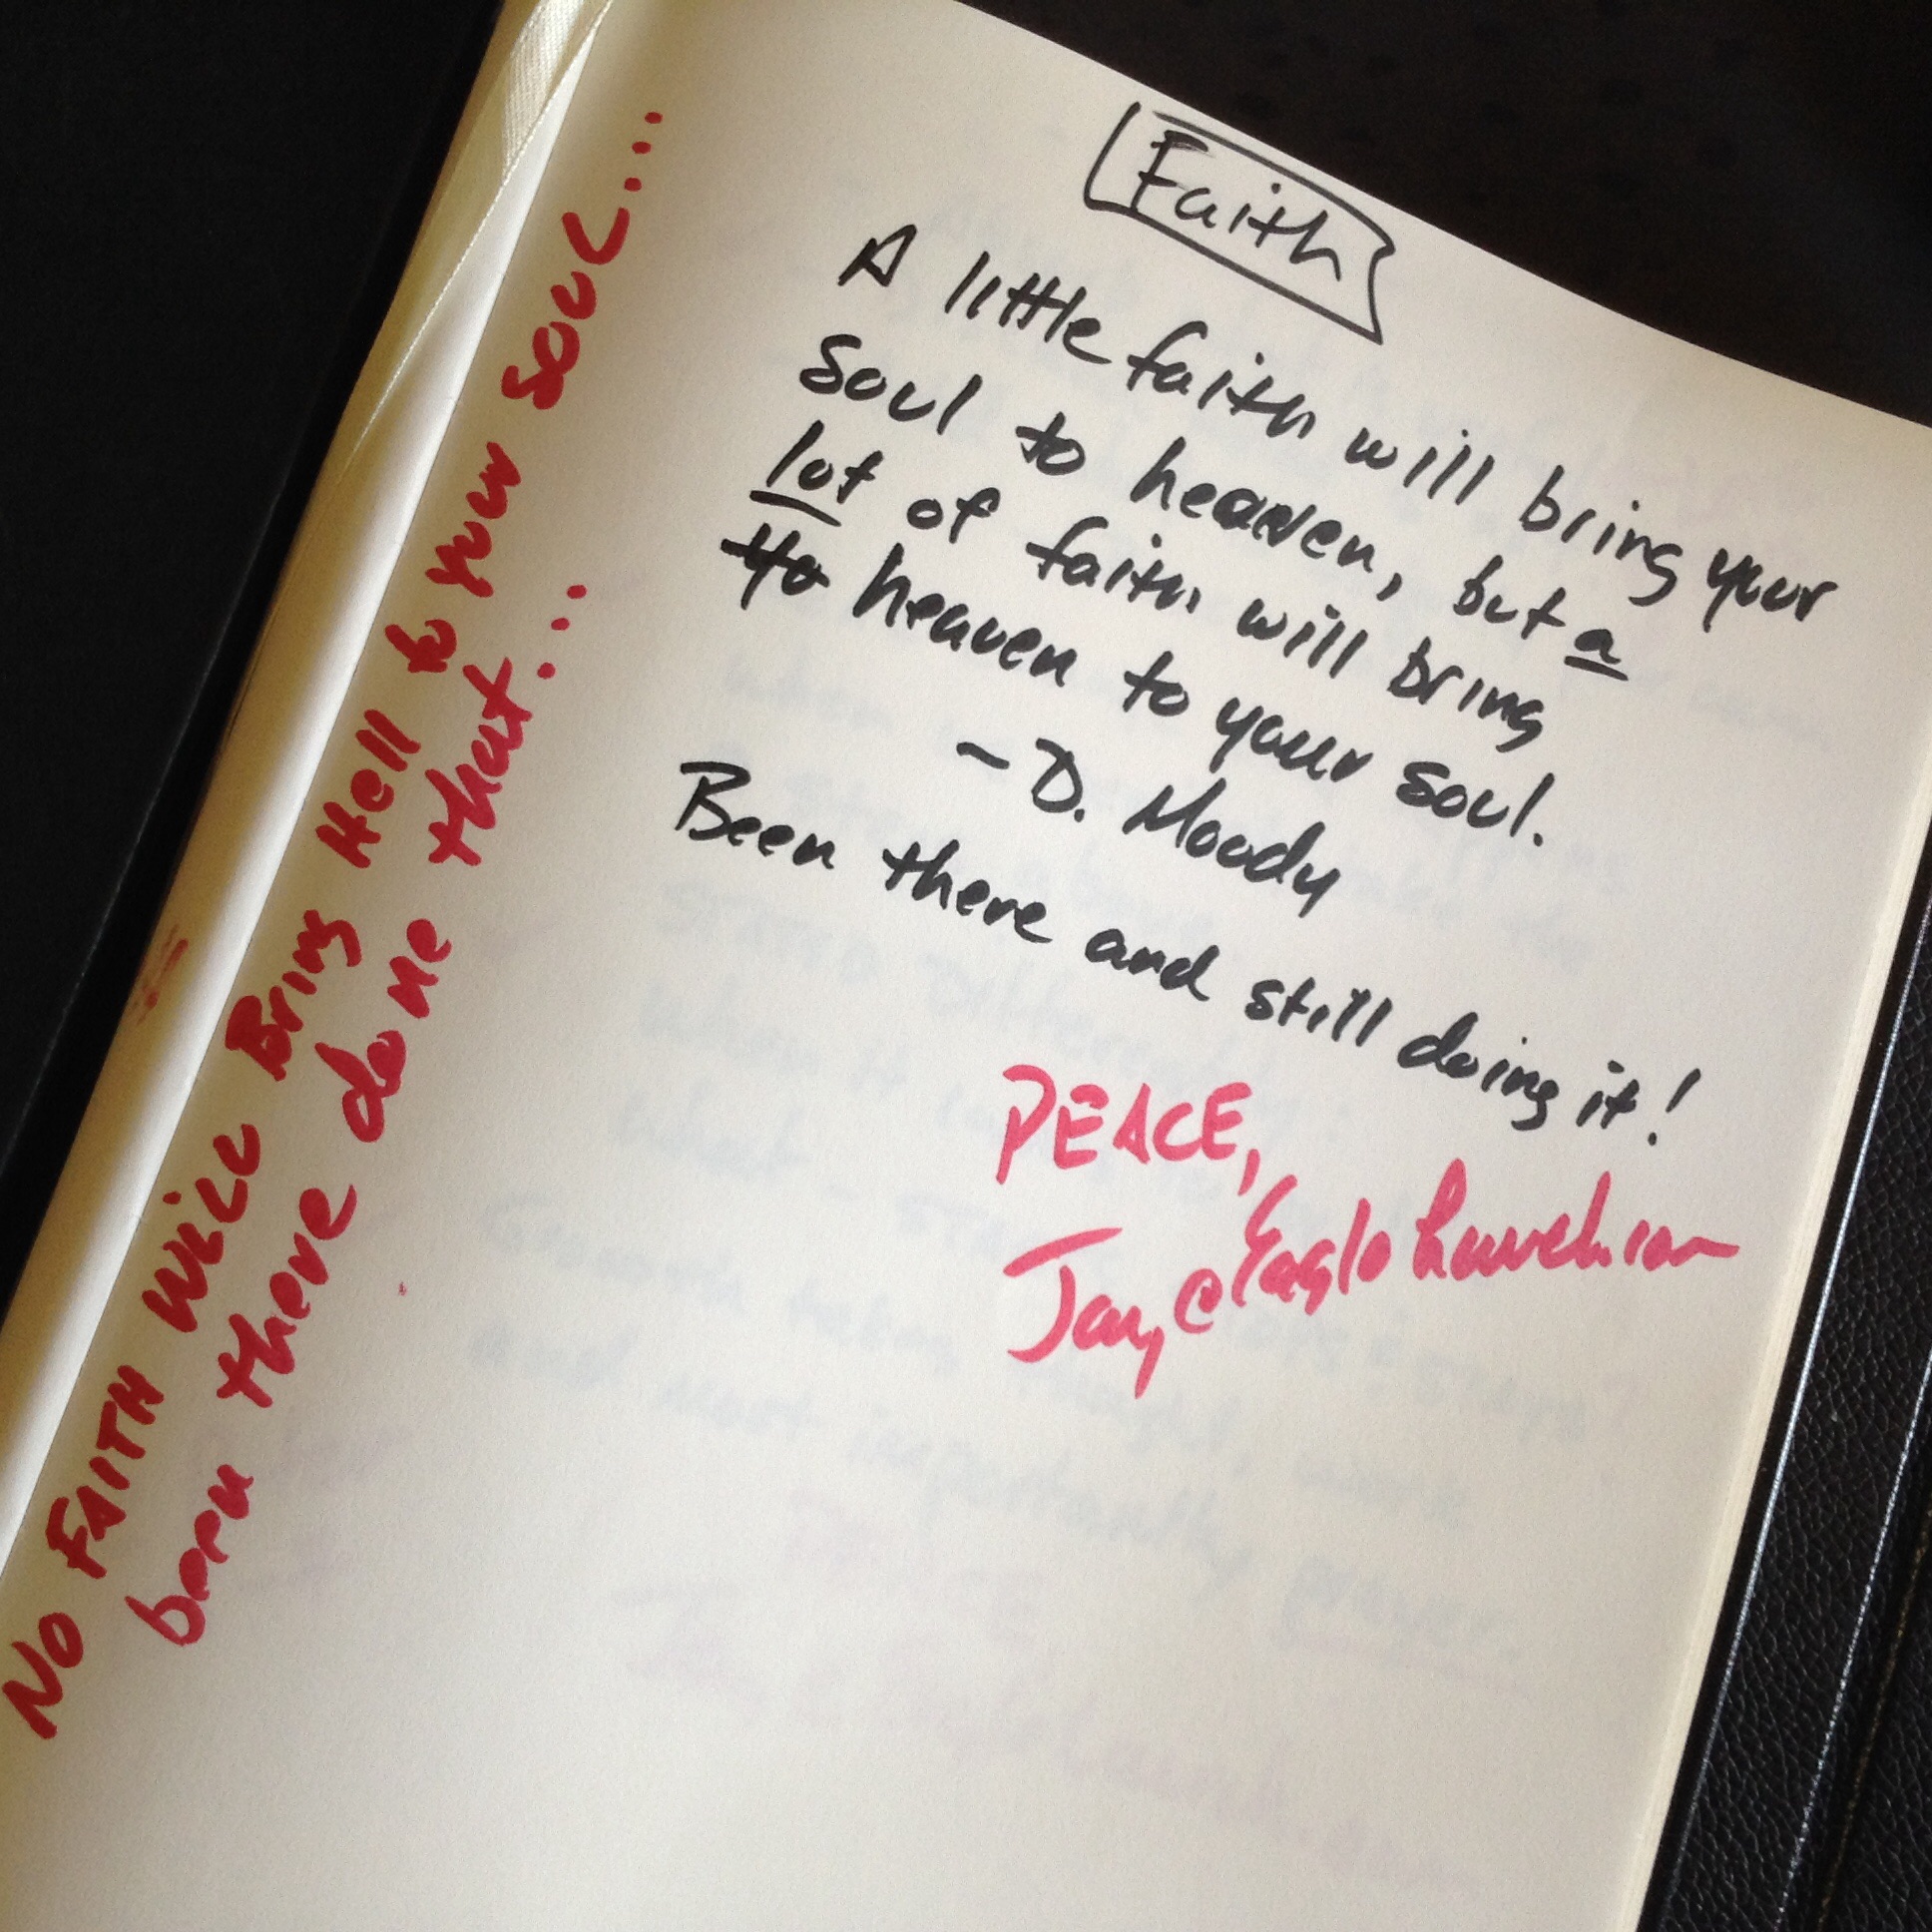 Faith
A little faith will bring your
soul to heaven, but a
lot of faith will bring
heaven to your soul.
- D. Moody
Been there and still doing it!
PEACE,
Jay @ Eagle
No FAITH WILL Bring Hell to your SOUL...
been there done that...